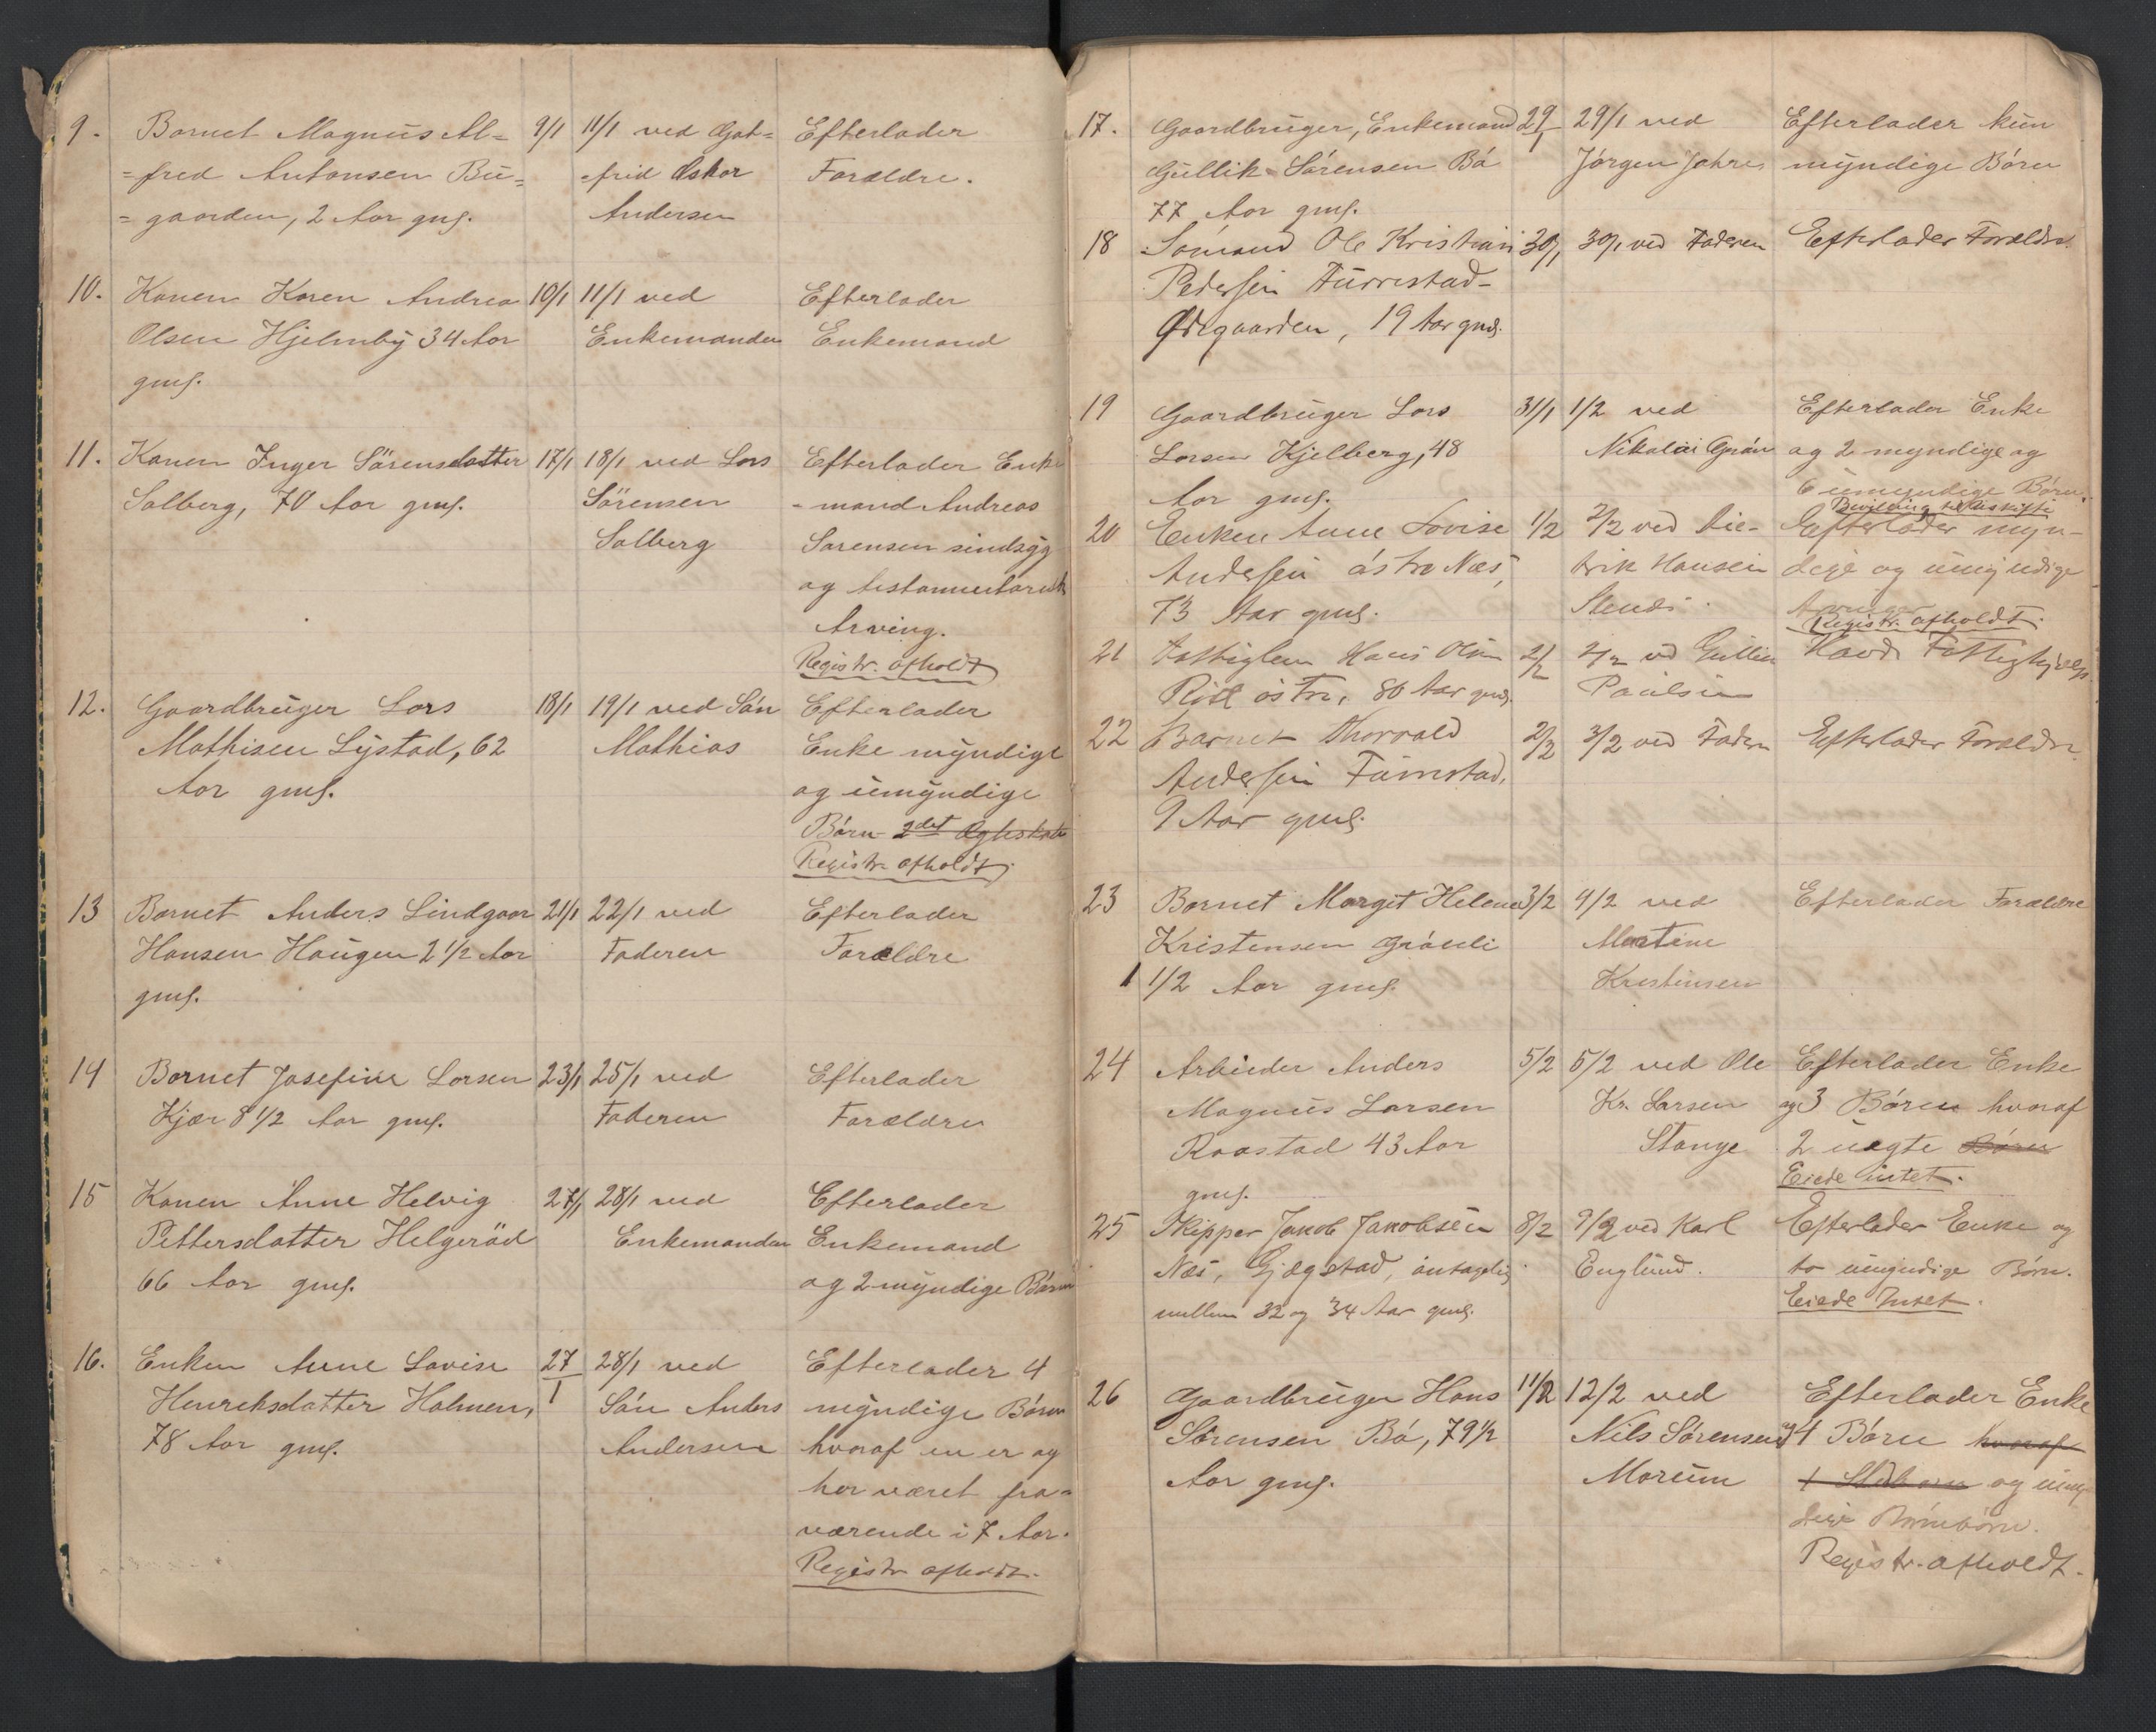 9. Barnet Magnus Al= 9/1 11/1 ved Got= Efterlader
=fred Antonsen Bu= =frid Oskar Forældre.
=gaarden, 2 Aar gml. Andersen
10. Konen Karen Andrea 10/1 11/1 ved Efterlader
Olsen Hjelmby 34 Aar Enkemanden Enkemand
gml.
11. Konen Inger Sörensdatter 17/1 18/1 ved Lars Efterlader Enke
Solberg, 70 Aar gml. Sörensen =mand Andreas
Solberg Sørensen sindsyg
og testamentarisk
Arving.
Registr. afholdt
12. Gaardbruger Lars 18/1 19/1 ved Søn Efterlader
Mathisen Lystad, 62 Mathias Enke myndige
Aar gml. og umyndige
Børn 2det Ægteskab
Registr. afholdt.
13 Barnet Anders Lindgaar 21/1 22/1 ved Efterlader
Hansen Haugen 2 1/2 Aar Faderen Forældre
gml.
14 Barnet Josefine Larsen 23/1 25/1 ved Efterlader
Kjær 8 1/2 Aar gml. Faderen Forældre
15 Konen Anne Helvig 27/1 28/1 ved Efterlader
Pettersdatter Helgeröd Enkemanden Enkemand
66 Aar gml. og 2 myndige Børn
16. Enken Anne Lovise 27/1 28/1 ved Efterlader 4
Henriksdatter Holmen, Søn Anders myndige Børn
78 Aar gml. Andersen hvoraf en er og
har været fra=
værende i 7 Aar.
Registr. afholdt.
17. Gaardbruger, Enkemand 29/1 29/1 ved Efterlader kun
Gullik Sørensen Bø Jørgen Jahre myndige Børn
77 Aar gml.
18 Sømand Ole Kristian 30/1 30/1 ved Faderen Efterlader Forældre.
Pedersen Furrestad-
Ødegaarden, 19 Aar gml.
19 Gaardbruger Lars 31/1 1/2 ved Efterlader Enke
Larsen Kjelberg, 48 Nikolai Grøn og 2 myndige og
Aar gml. 6 umyndige Børn.
Bevilling til
20 Enken Anne Lovise 1/2 2/2 ved Die- Efterlader myn-
Andersen østre Næs, drik Hansen dige og umyndige
73 Aar gml. Arvinger
Registr. afholdt.
21 Fattiglem Hans Olsen 2/2 2/2 ved Havde Fattighjælp
østre, 80 Aar gml. Paulsen
22 Barnet Thorvald 2/2 3/2 ved Faderen Efterlader Forældre.
Andersen
9 Aar gml.
23 Barnet Margit Helene 3/2 4/2 ved Efterlader Forældre
Kristensen Grønli Martine
1 1/2 Aar gml. Kristensen
24 Arbeider Anders 5/2 5/2 ved Ole Efterlader Enke
Magnus Larsen Kr. Larsen og 3 Børn hvoraf
Raastad 43 Aar Stange 2 uægte Børn
gml. Eiede intet.
25 Skipper Jakob Jakobsen 8/2 9/2 ved Karl Efterlader Enke og
Næs, Gjægstad, antagelig Englund. to umyndige Børn.
mellem 32 og 34 Aar gml. Eiede Intet.
26 Gaardbruger Hans 11/2 12/2 ved Efterlader Enke
Sørensen Bø, 79 1/2 Nils Sørensen og 4 Børn hvoraf
Aar gml. Marum 1 Stedbarn og umyn
dige Børnebørn.
Registr. afholdt.